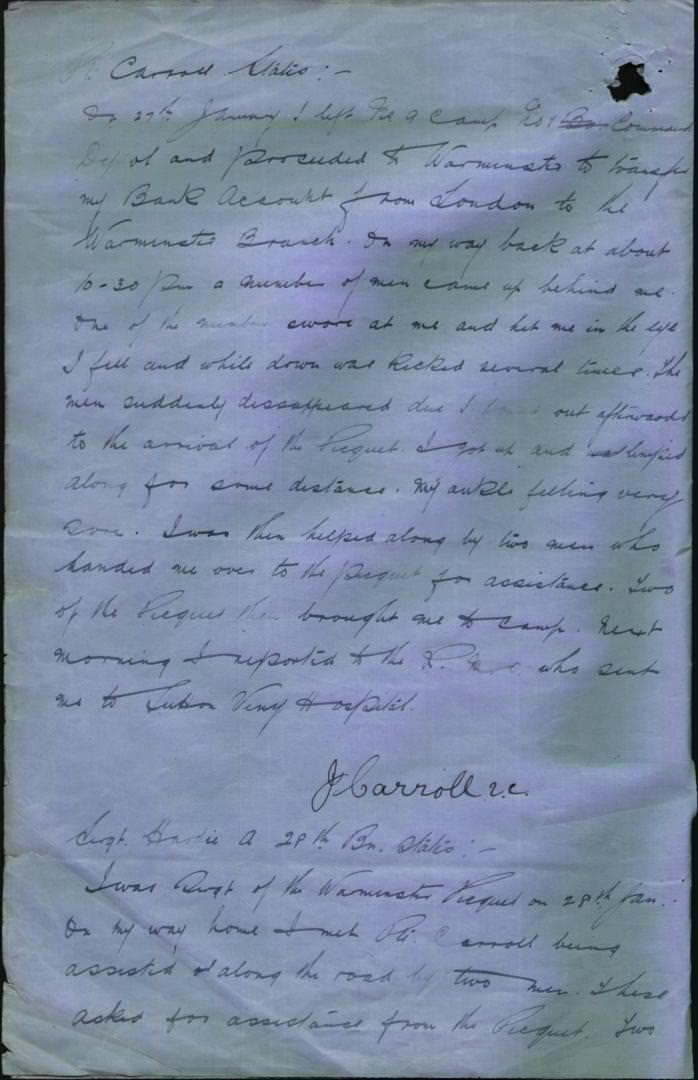 Pt. Carroll States:-
On 27th January I left No 9 Camp No 1 Command
Depot and proceeded to Warminster to transfer
my Bank Account from London to the
Warminster Branch. On my way back at about
10-30 pm a number of men came up behind me.
One of the number swore at me and hit me in the eye
I fell and while down was kicked several times. The
men suddenly dissappeared due I found out afterwards
to the arrival of the Picquet. I got up and limped
along for some distance. My ankle feeling very
sore. I was then helped along by two men who
handed me over to the picquet for assistance. Two
of the Picquet then brought me to camp. Next
morning I reported to the R.M.O. who sent
me to Sutton Veny Hospital.
J Carroll v.c.
Sergt. Hardie A 28th Bn. States:-
I was Sergt of the Warminster Picquet on 28th Jan.
On my way home I met Pte. Carroll being
assisted along the road by two men. These
asked for assistance from the Picquet. Two